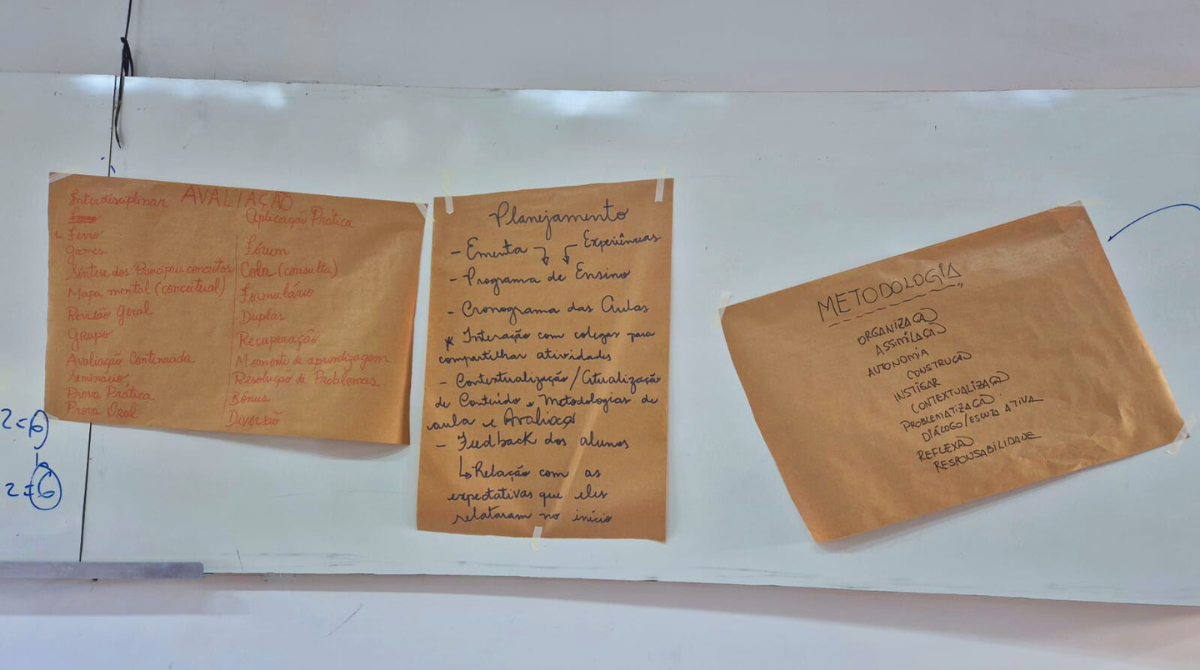 AVALIAÇÃO
Interdisciplinar
Aplicação Prática
Ferro
Games
Síntese dos Principais conceitos
Mapa mental (conceitual)
Revisão Geral
Grupo
Avaliação Continuada
Seminário
Prova Prática
Prova Oral
Fórum
Cola (consulta)
Formulário
Duplas
Recuperação
Momento de aprendizagem
Resolução de Problemas
Bônus
Diversão
Planejamento
- Ementa
Experiências
- Programa de Ensino
- Cronograma das Aulas
* Interação com colegas para
compartilhar atividades
- Contextualização/Atualização
de Conteúdo e Metodologias de
aula e Avaliaçao
- Feedback dos alunos
↳ Relação com as
expectativas que eles
relataram no início
METODOLOGIA
ORGANIZAÇÃO
ASSIMILAÇÃO
AUTONOMIA
CONSTRUÇÃO
INSTIGAR
CONTEXTUALIZAÇÃO
PROBLEMATIZAÇÃO
DIÁLOGO/ESCUTA ATIVA
REFLEXÃO
RESPONSABILIDADE
2=6
2=6